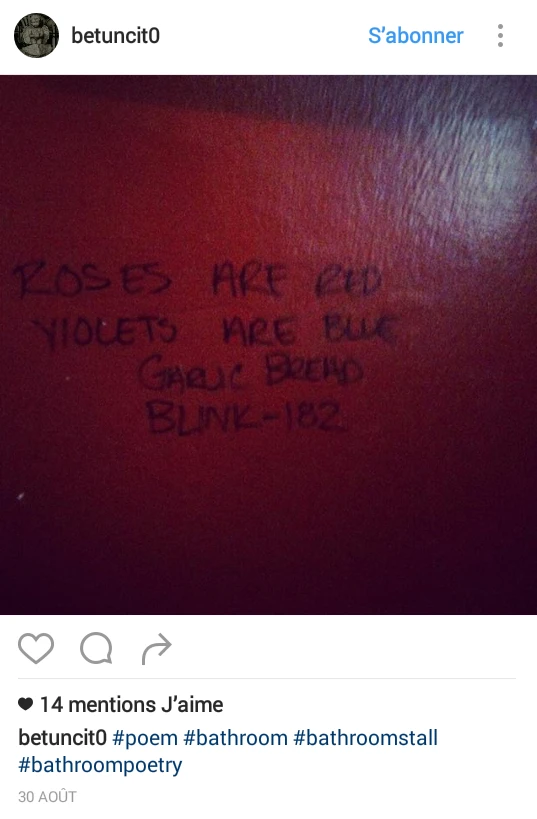 betuncit0
S'abonner
ROSES ARE RED
VIOLETS ARE BLUE
GARLIC BREAD
BLINK-182
14 mentions J'aime
betuncit0 #poem #bathroom #bathroomstall
#bathroompoetry
30 AOÛT